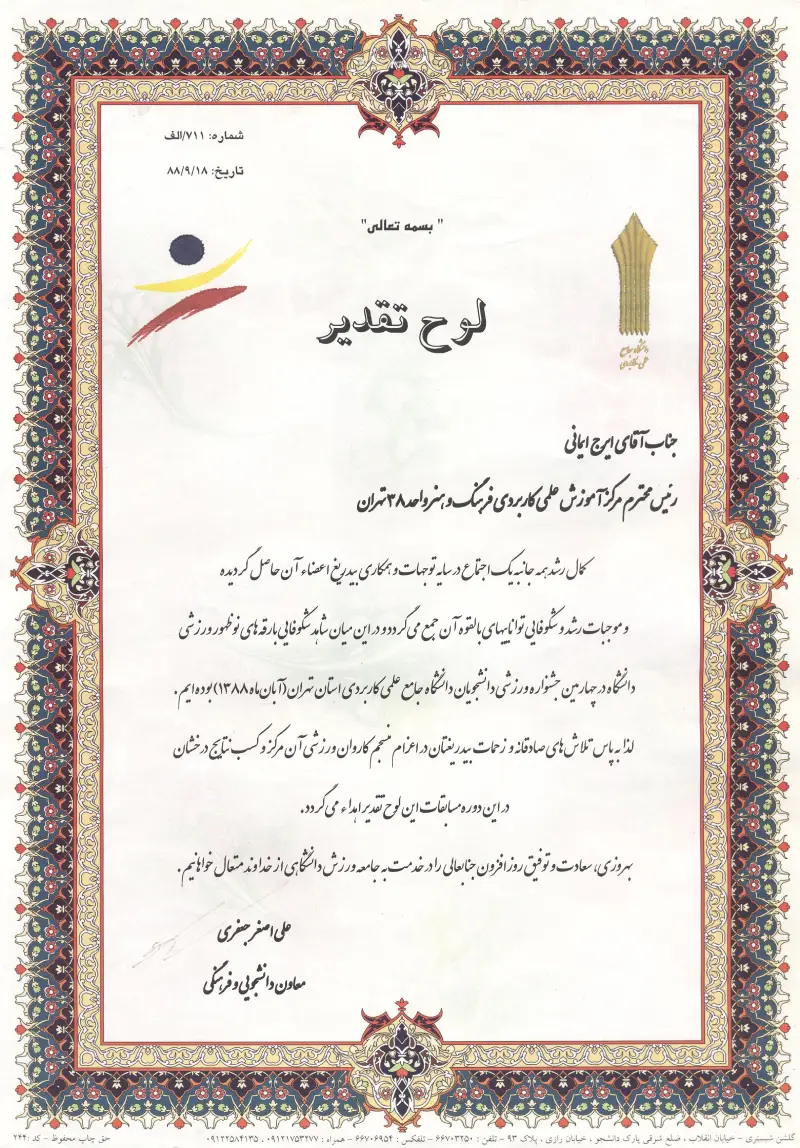 شماره: ۷۱۱/الف
تاریخ: ۸۸/۹/۱۸
"بسمه تعالی"
لوح تقدیر
دانشگاه جامع
علمی کاربردی
جناب آقای ایرج ایمانی
رئیس محترم مرکز آموزش علمی کاربردی فرهنگ و هنر واحد ۳۸ تهران
کمال رشد همه جانبه یک اجتماع در سایه توجهات و همکاری بیدریغ اعضاء آن حاصل گردیده
و موجبات رشد و شکوفایی تواناییهای بالقوه آن جمع می گردد و در این میان شاهد شکوفایی بارقه های نوظهور ورزشی
دانشگاه در چهارمین جشنواره ورزشی دانشجویان دانشگاه جامع علمی کاربردی استان تهران (آبان ماه ۱۳۸۸) بوده ایم.
لذا به پاس تلاش های صادقانه و زحمات بیدریغتان در اعزام منسجم کاروان ورزشی آن مرکز و کسب نتایج درخشان
در این دوره مسابقات این لوح تقدیر اهداء می گردد.
بهروزی، سعادت و توفیق روز افزون جنابعالی را در خدمت به جامعه ورزش دانشگاهی از خداوند متعال خواهانیم.
علی اصغر جعفری
معاون دانشجویی و فرهنگی
گلشن شبستری - خیابان انقلاب ، ضلع شرقی پارک دانشجو ، خیابان رازی ، پلاک ۹۳ - تلفن : ۶۶۷۰۳۲۵۰ - تلفکس : ۶۶۷۰۶۹۵۴ - همراه : ۰۹۱۲۱۷۵۳۲۷۷ ، ۰۹۱۲۲۵۸۴۱۳۵ حق چاپ محفوظ - کد :۲۴۴